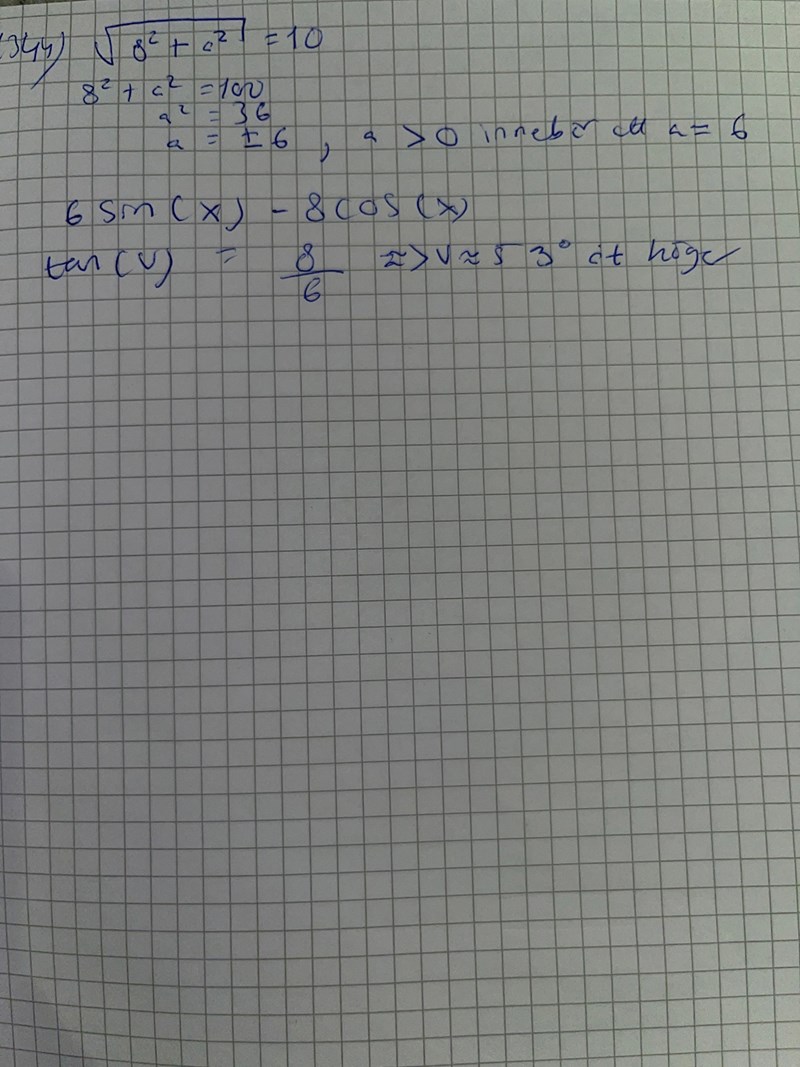 1344) √(8² + a²) = 10
8² + a² = 100
a² = 36
a = ± 6 , a > 0 innebär att a = 6
6 sin(x) - 8 cos(x)
tan(v) = 8/6 => v ≈ 53° åt höger